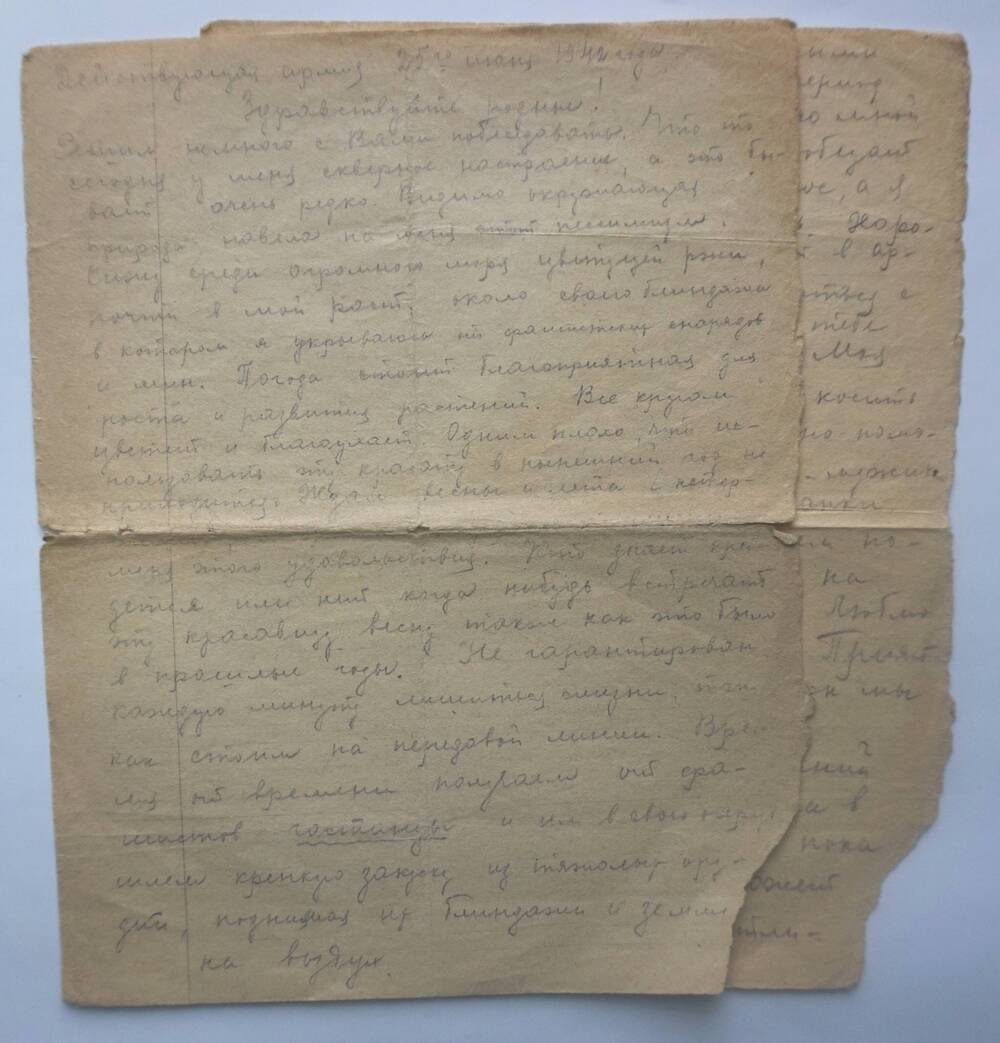 Действующая армия 25го июня 1942 года
Здравствуйте родные!
немного с Вами побеседовать. Что то
сегодня у меня скверное настроение, а это бы-
вает очень редко. Видимо окружающая
природа навела на меня этот песимизм.
Сижу среди огромного моря цветущей ржи,
почти в мой рост, около своего блиндажа
в котором я укрываюсь от фашистских снарядов
и мин. Погода стоит благоприятная для
роста и развития растений. Все кругом
цветет и благоухает. Одним плохо, что ис-
пользовать эту красоту в нынешний год не
приходится. Ждал весны и лета с нетер-
меня этого удовольствия. Кто знает при-
дется или нет когда нибудь встречать
эту красавицу весну такой как это было
в прошлые годы. Не гарантирован
каждую минуту лишиться жизни, так
как стоим на передовой линии. Вре-
мя от времени получаем от фа-
шистов гостинцы и им в свою
шлем крепкую закуску из тяжолых ору-
дий, поднимая их блиндажи и землю
на воздух.
ными
период
со мной
обедает
а я
Хоро-
в ар-
с
тебе
Моя
косить
но-помо-
по-
на
Люблю
Прият-
мы
в
пока